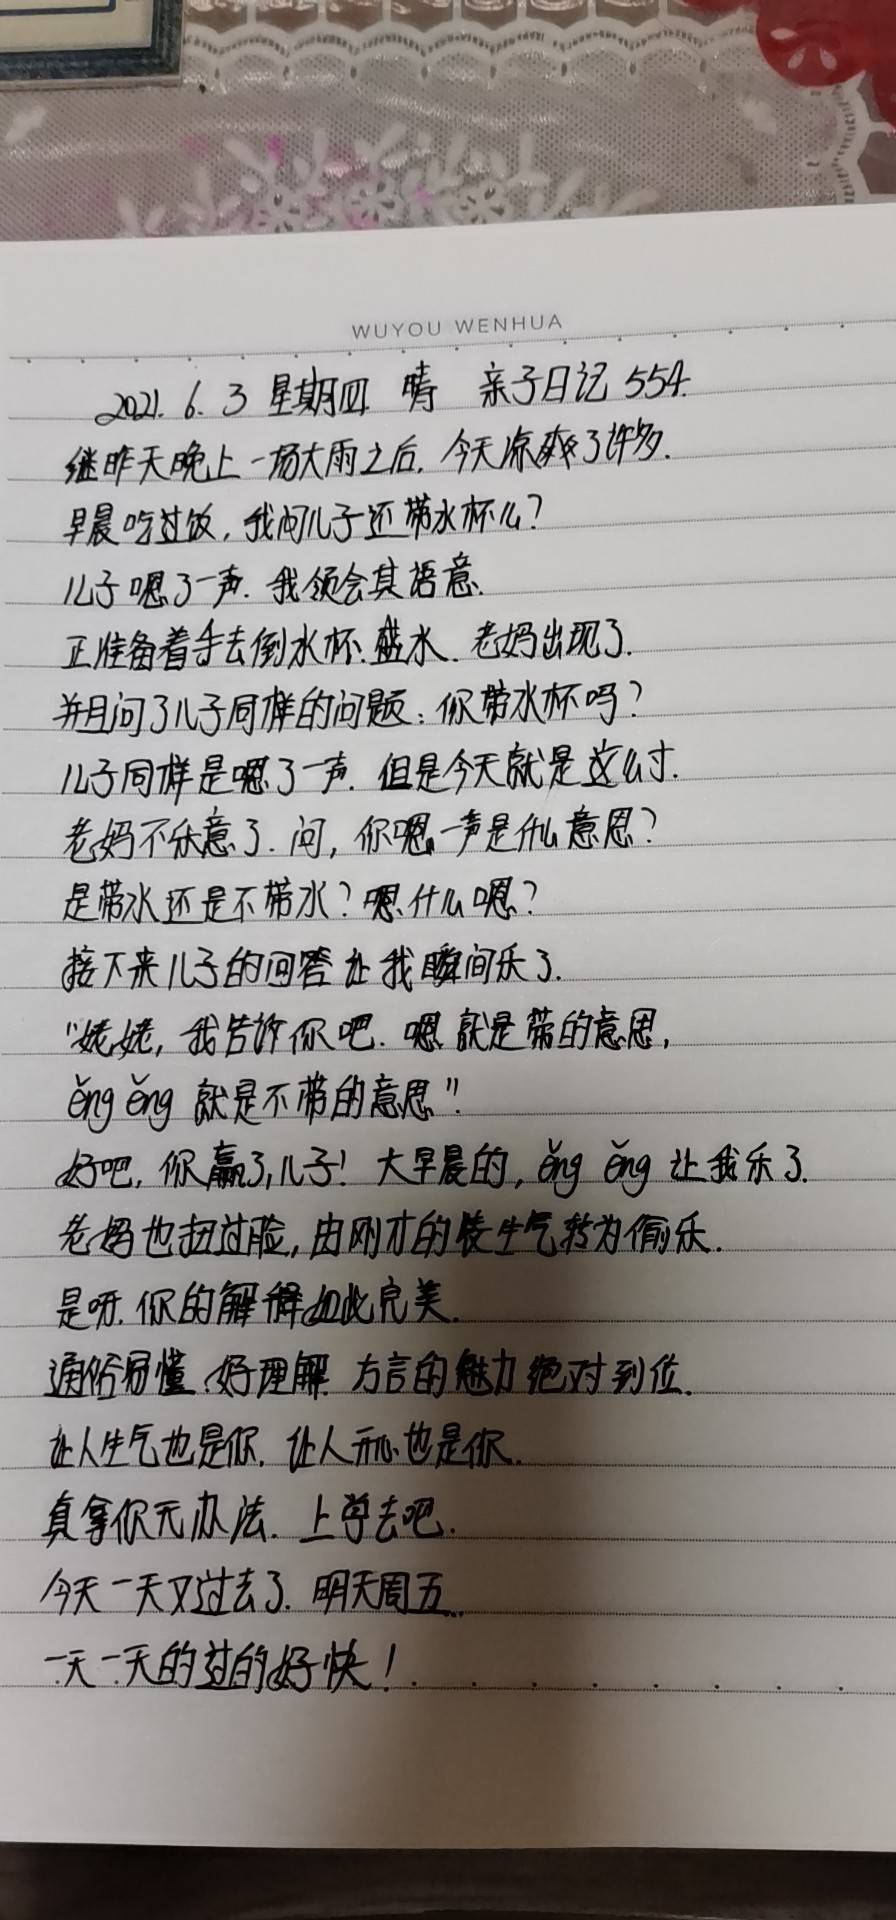 WUYOU WENHUA
2021.6.3 星期四 晴 亲子日记 554.
继昨天晚上一场大雨之后.今天凉爽了许多.
早晨吃过饭,我问儿子还带水杯么?
儿子嗯了一声.我领会其语意.
正准备着手去倒水杯.盛水.老妈出现了.
并且问了儿子同样的问题:你带水杯吗?
儿子同样是嗯了一声.但是今天就是这么寸.
老妈不乐意了.问,你嗯一声是什么意思?
是带水还是不带水?嗯什么嗯?
接下来儿子的回答让我瞬间乐了.
"姥姥,我告诉你吧.嗯就是带的意思,
ěng ěng 就是不带的意思"!
好吧,你赢了,儿子!大早晨的,ěng ěng 让我乐了.
老妈也扭过脸,由刚才的装生气转为偷乐.
是呀.你的解释如此完美.
通俗易懂.好理解.方言的魅力绝对到位.
让人生气也是你.让人开心也是你.
真拿你无办法.上学去吧.
今天一天又过去了.明天周五...
一天一天的过的好快!